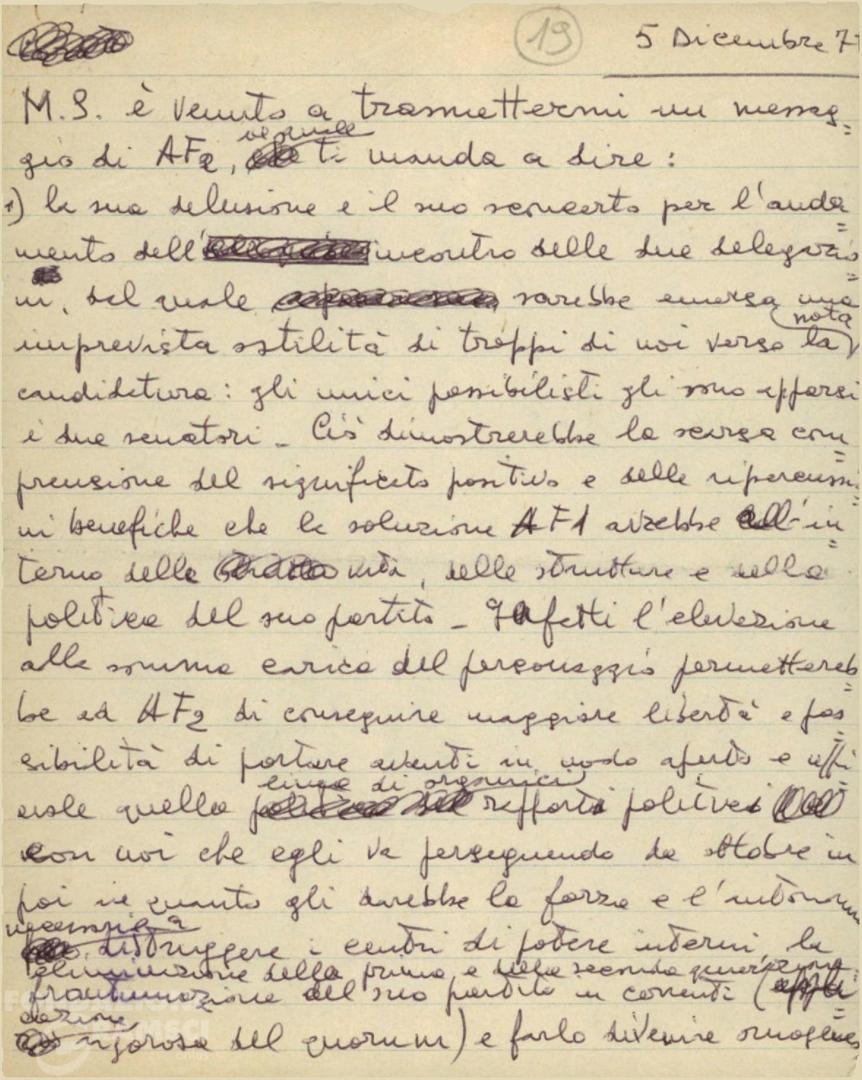 19
5 Dicembre 71
M.S. è venuto a trasmettermi un messag=
gio di AF2, ti manda a dire:
1) la sua delusione e il suo sconcerto per l'anda=
mento dell'incontro delle due delegazio=
ni, dal quale sarebbe emersa una
imprevista ostilità di troppi di noi verso la nota
candidatura: gli unici possibilisti gli sono apparsi
i due senatori - Ciò dimostrerebbe la scarsa com=
prensione del significato positivo e delle ripercussi=
ni benefiche che la soluzione AF1 avrebbe all'in=
terno della vita, delle strutture e della
politica del suo partito - Infatti l'elevazione
alla somma carica del personaggio permettereb=
be ad AF2 di conseguire maggiore libertà e pos=
sibilità di portare avanti in modo aperto e uffi=
ciale quella linea di organici rapporti politici
con noi che egli va perseguendo da ottobre in
poi in quanto gli darebbe la forza e l'autonomia
necessaria a distruggere i centri di potere interni, la
eliminazione della prima e della seconda generazione
frantumazione del suo partito in correnti (appli=
cazione rigorosa del quorum) e farlo divenire omogeneo